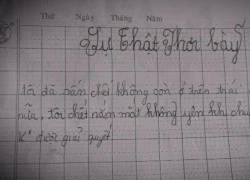 Thứ Ngày Tháng Năm
Sự Thật Phơi bày
Tôi đã nắm chết không còn ở trên trái
nữa, tôi chết nắm mắt không yên khi chu
được giải quyết